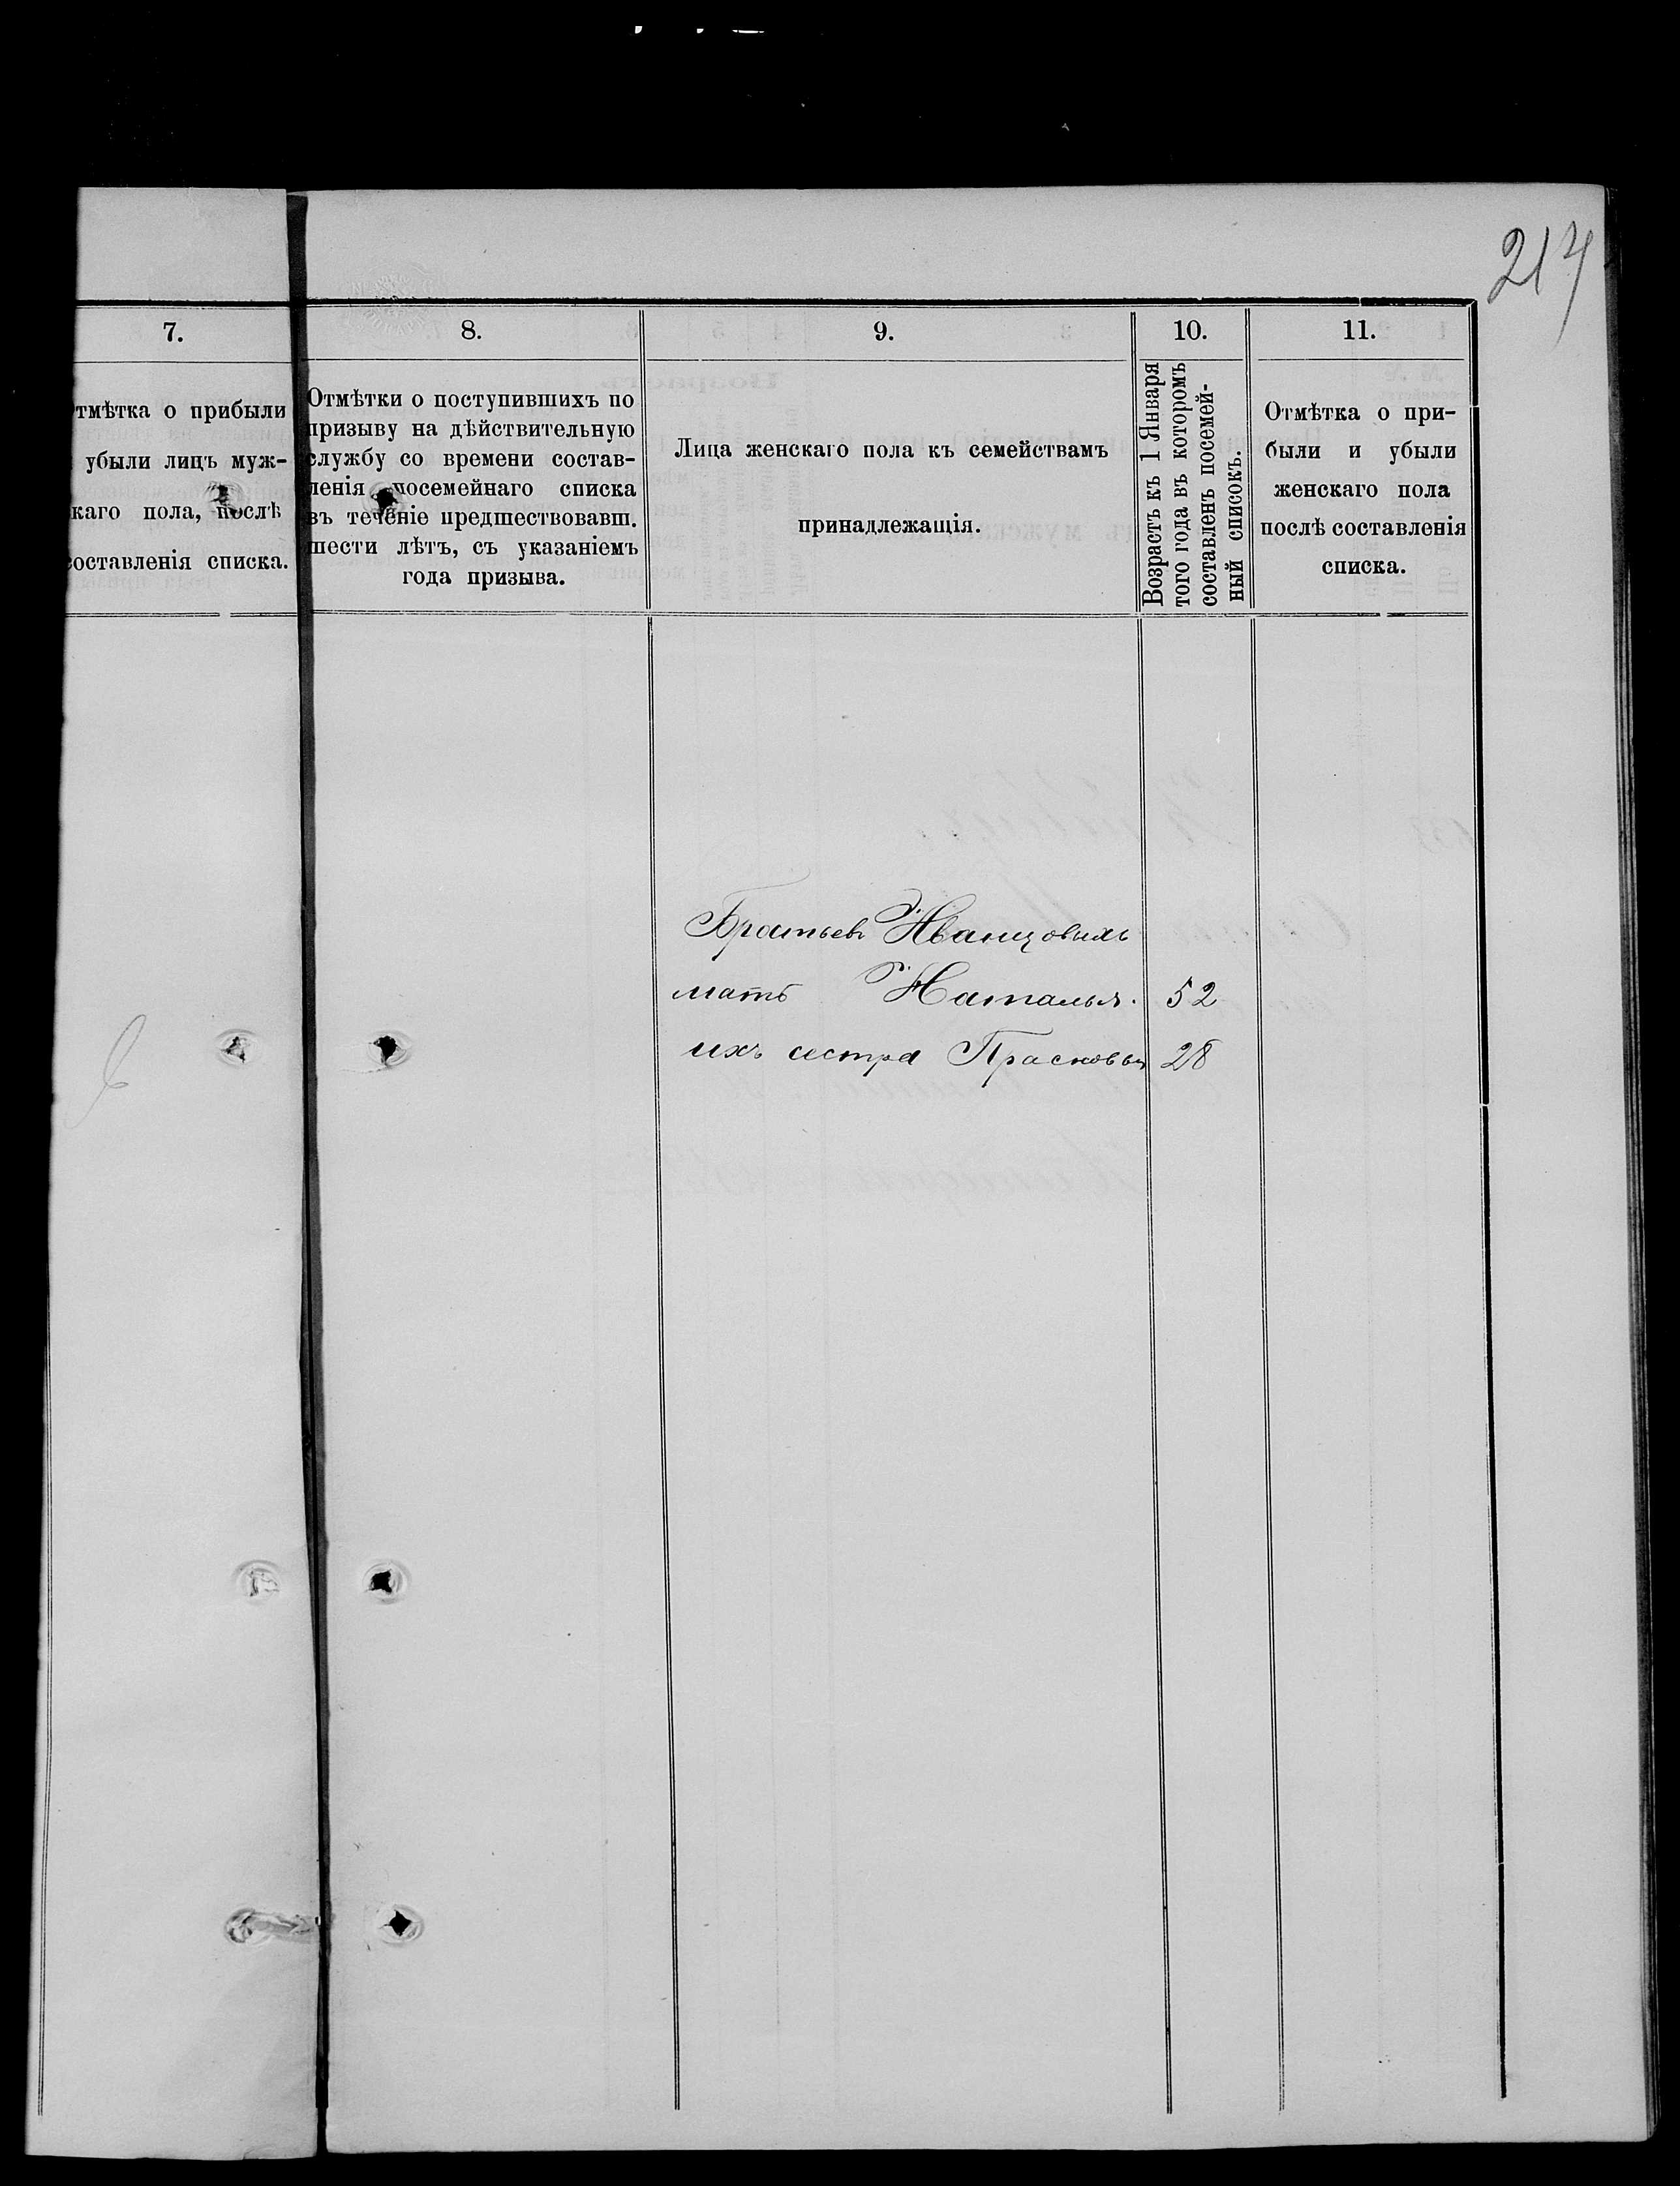 214
7.
8.
9.
10.
11.
тмѣтка о прибыли
убыли лицъ муж-
каго пола, послѣ
составленія списка.
Отмѣтки о поступившихъ по
призыву на дѣйствительную
службу со времени состав-
ленія посемейнаго списка
въ теченіе предшествовавш.
шести лѣтъ, съ указаніемъ
года призыва.
Лица женскаго пола къ семействамъ
принадлежащія.
Возрастъ къ 1 Января
того года въ которомъ
составленъ посемей-
ный списокъ.
Отмѣтка о при-
были и убыли
женскаго пола
послѣ составленія
списка.
Братьевъ Иванцовыхъ
мать Наталья. 52
ихъ сестра Прасковья 28